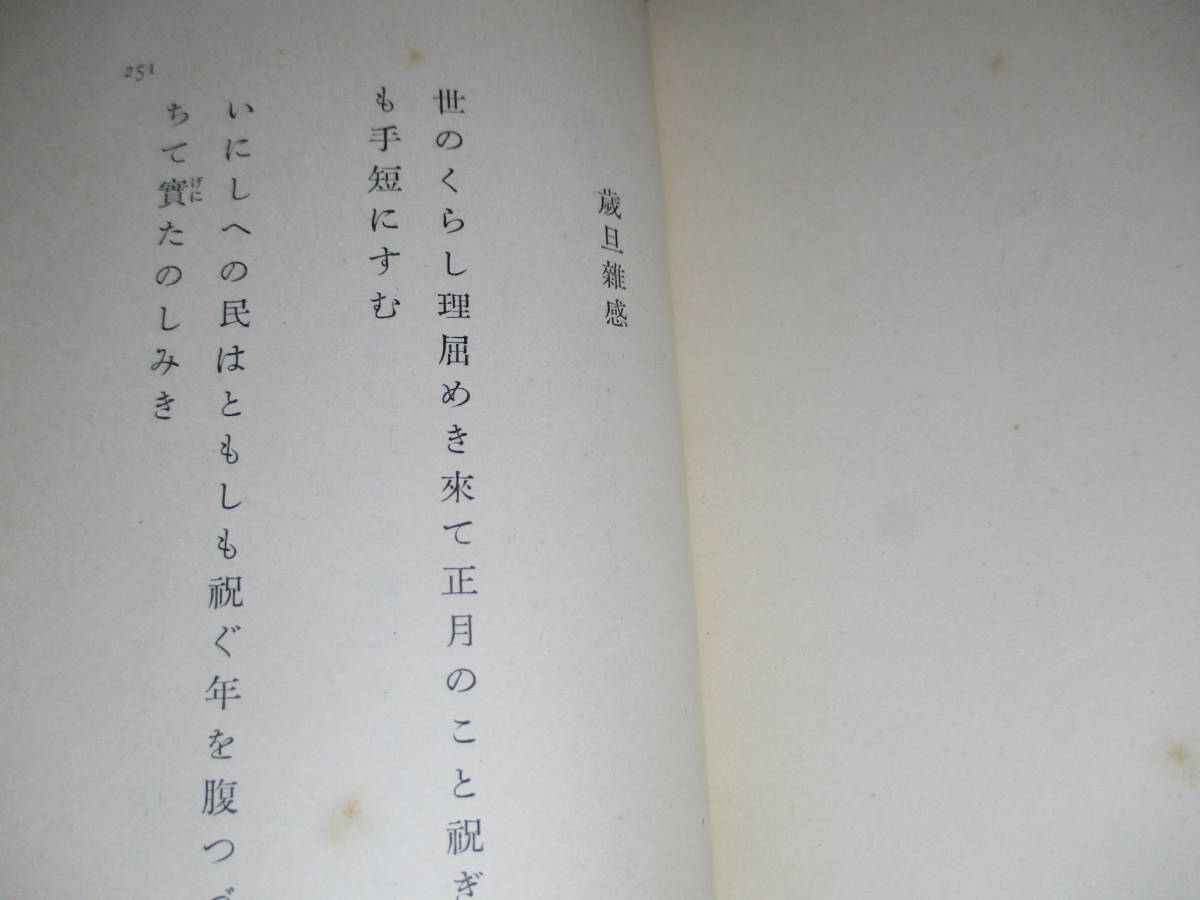 歲旦雜感
世のくらし理屈めき來て正月のこと祝ぎ
も手短にすむ
いにしへの民はともしも祝ぐ年を腹つづ
ちて實たのしみき
げに
251